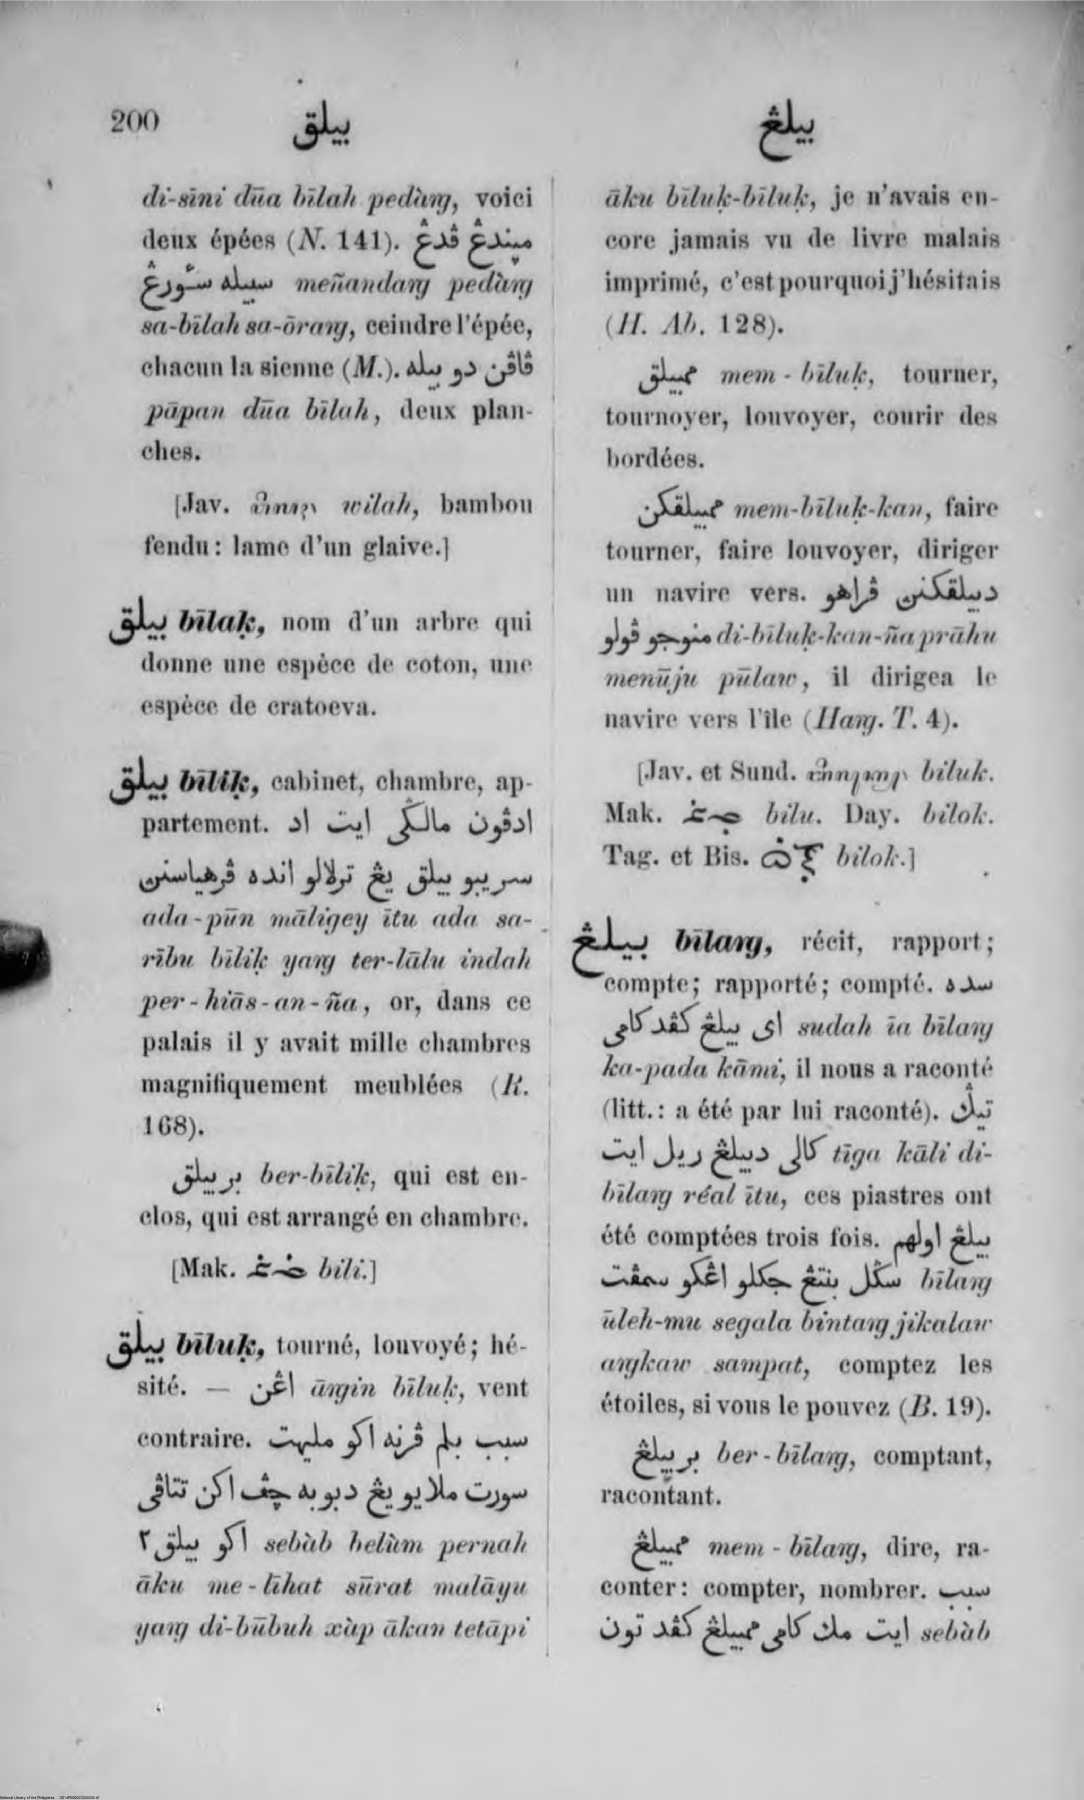 200
بيلق
بيلڠ
di-sīni dūa bīlah pedàng, voici
deux épées (N. 141). مپندڠ ڤدڠ
سبيله سٔورڠ meñandang pedàng
sa-bīlah sa-ōrang, ceindre l'épée,
chacun la sienne (M.). ڤاڤن دو بيله
pāpan dūa bīlah, deux plan-
ches.
[Jav. wilah, bambou
fendu: lame d'un glaive.]
بيلق bīlaḳ, nom d'un arbre qui
donne une espèce de coton, une
espèce de cratoeva.
بيلق bīliḳ, cabinet, chambre, ap-
partement. ادڤون ماليڬي ايت اد
سريبو بيلق يڠ ترلالو انده ڤرهياسنن
ada-pūn māligey ītu ada sa-
rību bīliḳ yang ter-lālu indah
per-hiās-an-ña, or, dans ce
palais il y avait mille chambres
magnifiquement meublées (R.
168).
بربيلق ber-bīliḳ, qui est en-
clos, qui est arrangé en chambre.
[Mak. bili.]
بيلق bīluḳ, tourné, louvoyé; hé-
sité. — اڠن āngin bīluḳ, vent
contraire. سبب بلم ڤرنه اكو مليهت
سورت ملايو يڠ دبوبه چڤ اكن تتاڤي
اكو بيلق٢ sebàb belùm pernah
āku me-līhat sūrat malāyu
yang di-būbuh xàp ākan tetāpi
āku bīluḳ-bīluḳ, je n'avais en-
core jamais vu de livre malais
imprimé, c'est pourquoi j'hésitais
(H. Ab. 128).
ممبيلق mem-bīluḳ, tourner,
tournoyer, louvoyer, courir des
bordées.
ممبيلقكن mem-bīluḳ-kan, faire
tourner, faire louvoyer, diriger
un navire vers. دبيلقكنن ڤراهو
منوجو ڤولو di-bīluḳ-kan-ña prāhu
menūju pūlaw, il dirigea le
navire vers l'île (Hang. T. 4).
[Jav. et Sund. biluk.
Mak. bilu. Day. bilok.
Tag. et Bis. bilok.]
بيلڠ bīlang, récit, rapport;
compte; rapporté; compté. سده
اي بيلڠ كڤد كامي sudah īa bīlang
ka-pada kāmi, il nous a raconté
(litt.: a été par lui raconté). تيݢ
كالي دبيلڠ ريل ايت tīga kāli di-
bīlang réal ītu, ces piastres ont
été comptées trois fois. بيلڠ اولهم
سݢل بنتڠ جكلو اڠكو سمڤت bīlang
ūleh-mu segala bintang jikalaw
angkaw sampat, comptez les
étoiles, si vous le pouvez (B. 19).
بربيلڠ ber-bīlang, comptant,
racontant.
ممبيلڠ mem-bīlang, dire, ra-
conter: compter, nombrer. سبب
ايت مك كامي ممبيلڠ كڤد تون sebàb